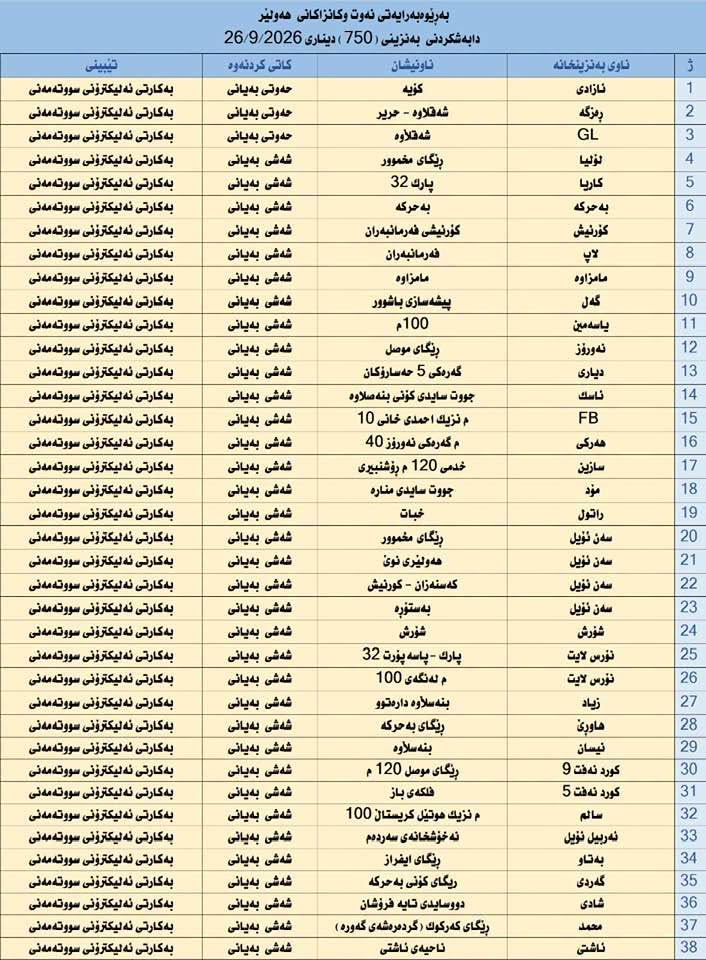 بەڕێوەبەرایەتی نەوت وکانزاکانی هەولێر
دابەشکردنی بەنزینی (750) دیناری 26/9/2026
ژ ناوی بەنزینخانە ناونیشان کاتی کردنەوە تێبینی
1 ئازادی کۆیە حەوتی بەیانی بەکارتی ئەلیکترۆنی سووتەمەنی
2 ڕەزگە شەقلاوە - حریر حەوتی بەیانی بەکارتی ئەلیکترۆنی سووتەمەنی
3 GL شەقلاوە حەوتی بەیانی بەکارتی ئەلیکترۆنی سووتەمەنی
4 لۆلیا ڕێگای مخموور شەشی بەیانی بەکارتی ئەلیکترۆنی سووتەمەنی
5 کاریا پارك 32 شەشی بەیانی بەکارتی ئەلیکترۆنی سووتەمەنی
6 بەحرکە بەحرکە شەشی بەیانی بەکارتی ئەلیکترۆنی سووتەمەنی
7 کۆرنیش کۆرنیشی فەرمانبەران شەشی بەیانی بەکارتی ئەلیکترۆنی سووتەمەنی
8 لاپ فەرمانبەران شەشی بەیانی بەکارتی ئەلیکترۆنی سووتەمەنی
9 مامزاوە مامزاوە شەشی بەیانی بەکارتی ئەلیکترۆنی سووتەمەنی
10 گەل پیشەسازی باشوور شەشی بەیانی بەکارتی ئەلیکترۆنی سووتەمەنی
11 یاسەمین 100م شەشی بەیانی بەکارتی ئەلیکترۆنی سووتەمەنی
12 نەورۆز ڕێگای موصل شەشی بەیانی بەکارتی ئەلیکترۆنی سووتەمەنی
13 دیاری گەرەکی 5 حەسارۆکان شەشی بەیانی بەکارتی ئەلیکترۆنی سووتەمەنی
14 ناسك جووت سایدی کۆنی بنەصلاوە شەشی بەیانی بەکارتی ئەلیکترۆنی سووتەمەنی
15 FB م نزیك احمدی خانی 10 شەشی بەیانی بەکارتی ئەلیکترۆنی سووتەمەنی
16 هەرکی م گەرەکی نەورۆز 40 شەشی بەیانی بەکارتی ئەلیکترۆنی سووتەمەنی
17 سازین خدمی 120 م ڕۆشنبیری شەشی بەیانی بەکارتی ئەلیکترۆنی سووتەمەنی
18 مۆد جووت سایدی منارە شەشی بەیانی بەکارتی ئەلیکترۆنی سووتەمەنی
19 راتول خبات شەشی بەیانی بەکارتی ئەلیکترۆنی سووتەمەنی
20 سەن ئۆیل ڕێگای مخموور شەشی بەیانی بەکارتی ئەلیکترۆنی سووتەمەنی
21 سەن ئۆیل هەولێری نوێ شەشی بەیانی بەکارتی ئەلیکترۆنی سووتەمەنی
22 سەن ئۆیل کەسنەزان - کورنیش شەشی بەیانی بەکارتی ئەلیکترۆنی سووتەمەنی
23 سەن ئۆیل بەستۆڕە شەشی بەیانی بەکارتی ئەلیکترۆنی سووتەمەنی
24 شۆرش شۆرش شەشی بەیانی بەکارتی ئەلیکترۆنی سووتەمەنی
25 نۆرس لایت پارك -پاسەپۆرت 32 شەشی بەیانی بەکارتی ئەلیکترۆنی سووتەمەنی
26 نۆرس لایت م لەنگەی 100 شەشی بەیانی بەکارتی ئەلیکترۆنی سووتەمەنی
27 زیاد بنەسڵاوە دارەتوو شەشی بەیانی بەکارتی ئەلیکترۆنی سووتەمەنی
28 هاوڕێ ڕێگای بەحرکە شەشی بەیانی بەکارتی ئەلیکترۆنی سووتەمەنی
29 نیسان بنەسلاوە شەشی بەیانی بەکارتی ئەلیکترۆنی سووتەمەنی
30 کورد نەفت 9 ڕێگای موصل 120 م شەشی بەیانی بەکارتی ئەلیکترۆنی سووتەمەنی
31 کورد نەفت 5 فلکەی باز شەشی بەیانی بەکارتی ئەلیکترۆنی سووتەمەنی
32 سالم م نزیك هوتێل کریستاڵ 100 شەشی بەیانی بەکارتی ئەلیکترۆنی سووتەمەنی
33 ئەربیل ئۆیل نەخۆشخانەی سەردەم شەشی بەیانی بەکارتی ئەلیکترۆنی سووتەمەنی
34 بەتاو ڕێگای ایفراز شەشی بەیانی بەکارتی ئەلیکترۆنی سووتەمەنی
35 گەردی ریگای کۆنی بەحرکە شەشی بەیانی بەکارتی ئەلیکترۆنی سووتەمەنی
36 شادی دووسایدی تایە فرۆشان شەشی بەیانی بەکارتی ئەلیکترۆنی سووتەمەنی
37 محمد ڕێگای کەرکوك ( گردەرەشەی گەورە ) شەشی بەیانی بەکارتی ئەلیکترۆنی سووتەمەنی
38 ئاشتی ناحیەی ئاشتی شەشی بەیانی بەکارتی ئەلیکترۆنی سووتەمەنی